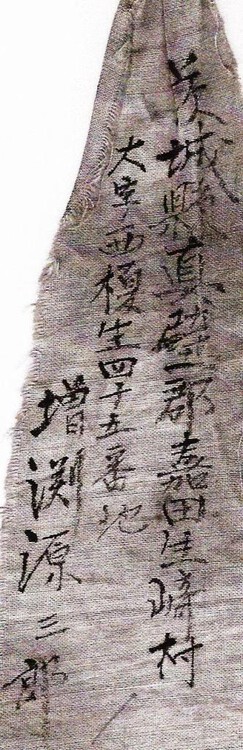 茨城縣真壁郡嘉田生崎村
大字西榎生四十五番地
増渕源三郎